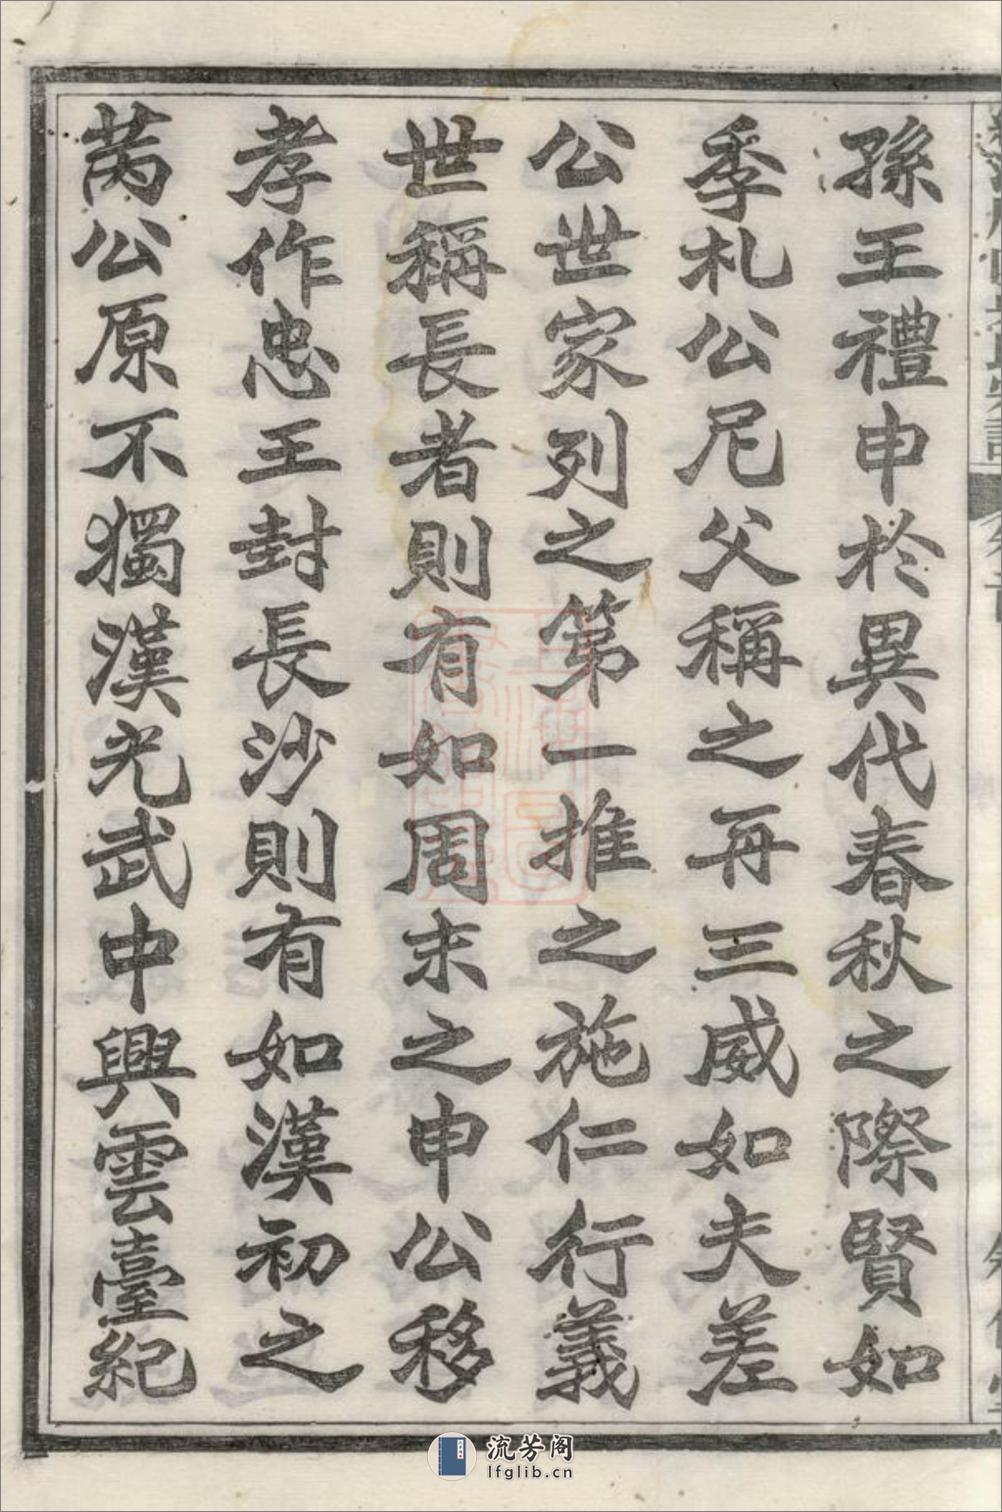 孫王禮申於異代春秋之際賢如
季札公尼父稱之再三威如夫差
公世家列之第一推之施仁行義
世稱長者則有如周末之申公移
孝作忠王封長沙則有如漢初之
芮公原不獨漢光武中興雲臺紀
流芳阁
lfglib.cn